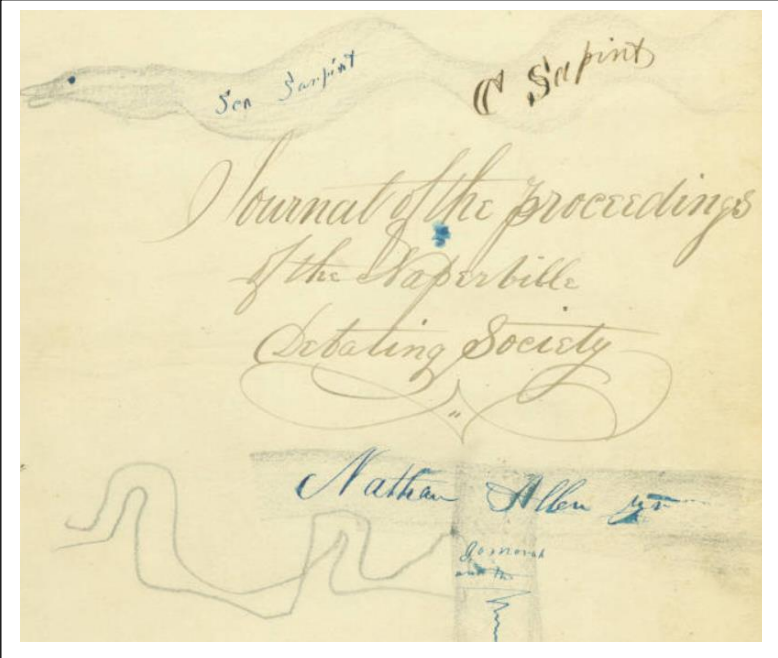 Sea Sarpint
C Sapint
Journal of the proceedings
of the Naperville
Debating Society
Nathan Allen
and the